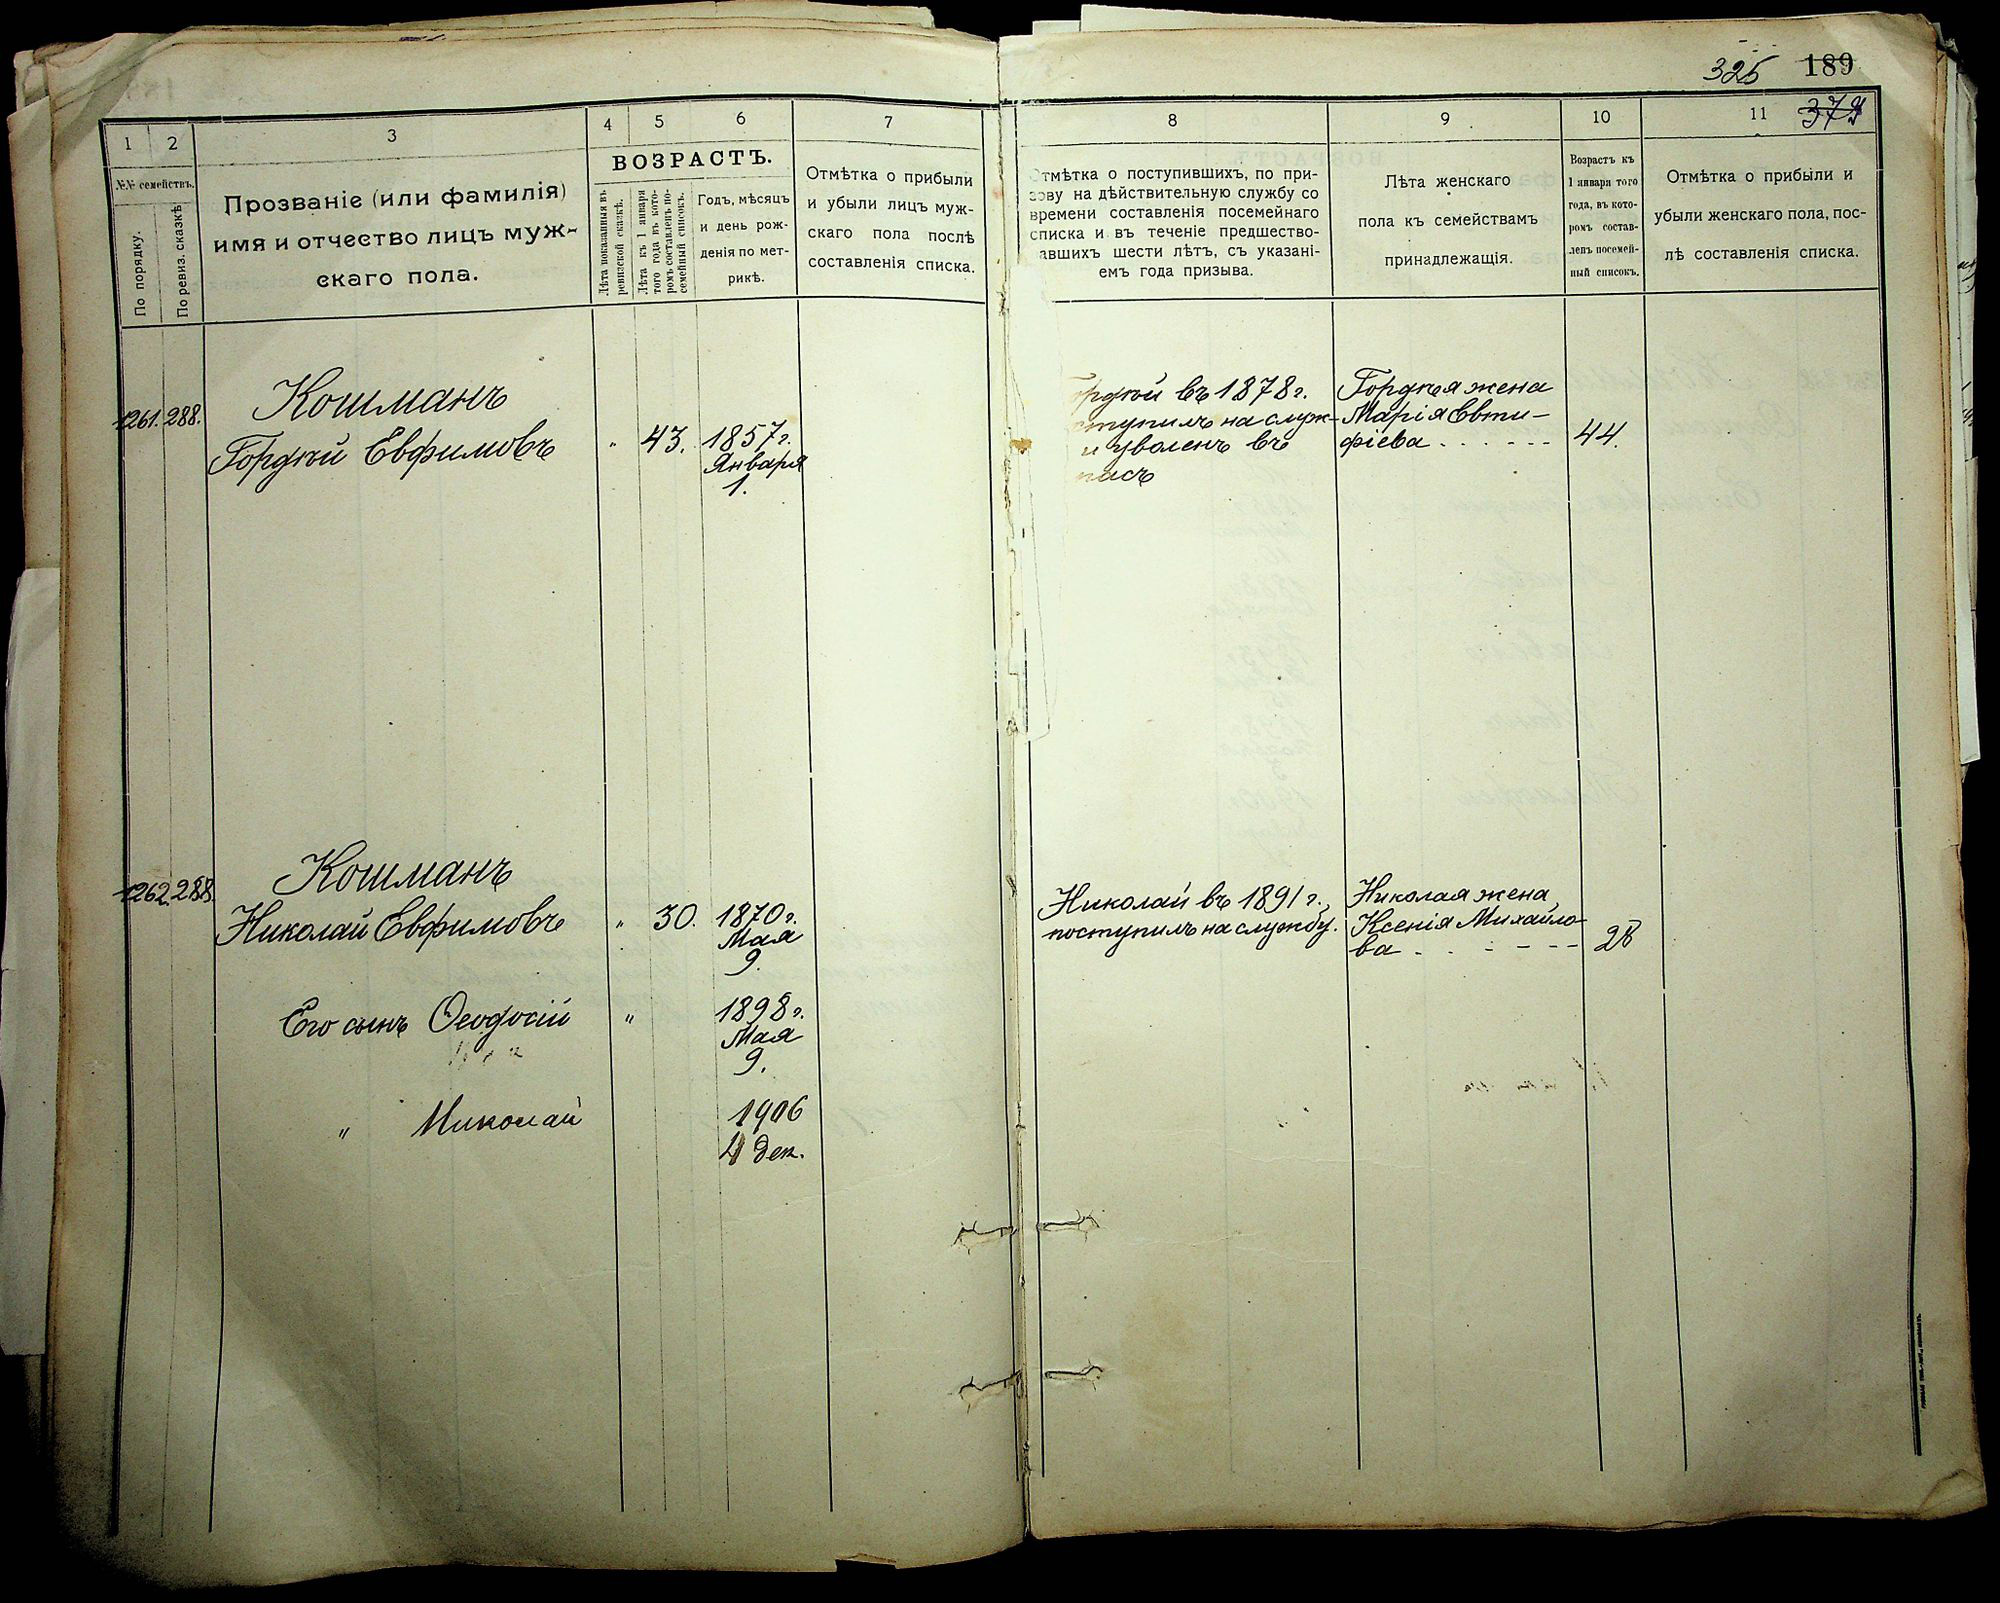 325 189
379
1 2 3 4 5 6 7
№№ семействъ.
По порядку.
По ревиз. сказкѣ
Прозваніе (или фамилія)
имя и отчество лицъ муж-
скаго пола.
ВОЗРАСТЪ.
Лѣта показанныя въ
ревизской сказкѣ.
Лѣта къ 1 января
того года въ кото-
ромъ составленъ по-
семейный списокъ.
Годъ, мѣсяцъ
и день рож-
денія по мет-
рикѣ.
Отмѣтка о прибыли
и убыли лицъ муж-
скаго пола послѣ
составленія списка.
8 9 10 11
Отмѣтка о поступившихъ, по при-
зову на дѣйствительную службу со
времени составленія посемейнаго
списка и въ теченіе предшество-
авшихъ шести лѣтъ, съ указані-
емъ года призыва.
Лѣта женскаго
пола къ семействамъ
принадлежащія.
Возрастъ къ
1 января того
года, въ кото-
ромъ состав-
ленъ посемей-
ный списокъ.
Отмѣтка о прибыли и
убыли женскаго пола, пос-
лѣ составленія списка.
1261. 288. Кошманъ
Гордѣй Евфимовъ " 43. 1857 г.
Января
1.
ордѣй въ 1878 г.
ступилъ на служ-
и уволенъ въ
пасъ
Гордѣя жена
Марія Евти-
фіева . . . . . . 44.
1262. 288. Кошманъ
Николай Евфимовъ " 30. 1870 г.
Мая
9.
Николай въ 1891 г.
поступилъ на службу.
Николая жена
Ксенія Михайло-
ва . . - - - - 28
Его сынъ Ѳеодосій " 1898 г.
Мая
9.
" Николай 1906
4 дек.